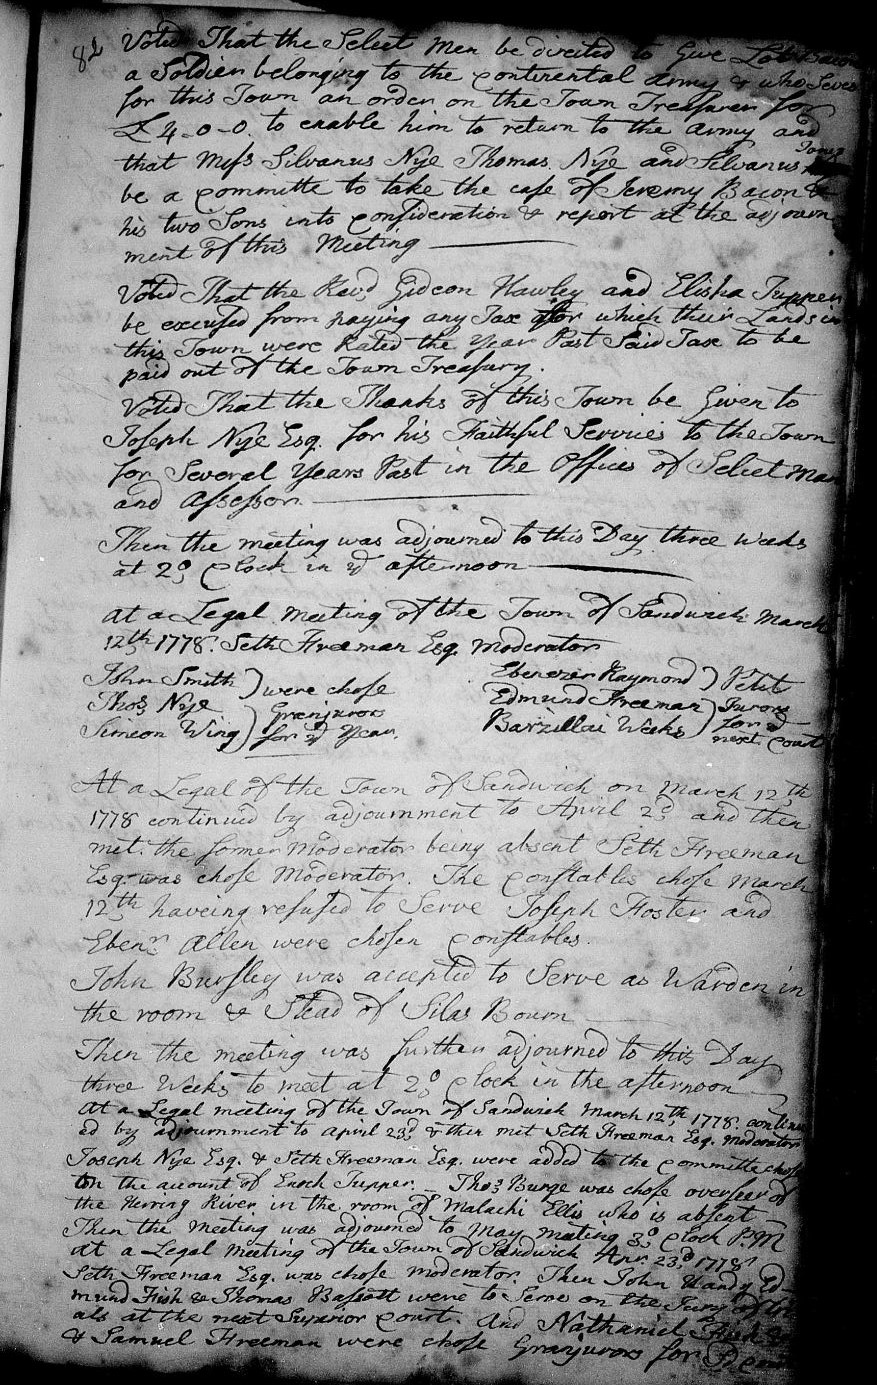 82 Voted That the Select Men be directed to Give Lot Bacon
a Soldier belonging to the Continental Army & who Serves
for this Town an order on the Town Treasurer for
£4-0-0. to enable him to return to the Army and
that Mess Silvanus Nye Thomas Nye and Silvanus Jones
be a Committe to take the case of Jeremy Bacon &
his two Sons into Consideration & report at the adjourn
ment of this Meeting
Voted That the Revd Gideon Hawley and Elisha Tupper
be excused from paying any Tax for which their Lands in
this Town were Rated the Year Past Said Tax to be
paid out of the Town Treasury.
Voted That the Thanks of this Town be Given to
Joseph Nye Esq. for his Faithful Services to the Town
for Several Years Past in the Offices of Select Man
and Assessor.
Then the meeting was adjourned to this Day three Weeks
at 2o Clock in ye afternoon
At a Legal Meeting of the Town of Sandwich March
12th 1778. Seth Freeman Esq. Moderator
John Smith ) were chose Ebenezer Raymond ) Petit
Thos Nye ) Granjurors Edmund Freeman ) Jurors
Simeon Wing ) for ye Year. Barzillai Weeks ) for ye
next Court
At a Legal of the Town of Sandwich on March 12th
1778 continued by adjournment to April 2d and then
met. the former Moderator being absent Seth Freeman
Esq. was chose Moderator. The Constables chose March
12th haveing refused to Serve Joseph Foster and
Ebenr Allen were chosen Constables.
John Bursley was accepted to Serve as Warden in
the room & Stead of Silas Bourn
Then the meeting was further adjourned to this Day
three Weeks to meet at 2o Clock in the afternoon
At a Legal meeting of the Town of Sandwich March 12th 1778. continu
ed by adjournment to April 23d & then met Seth Freeman Esq. Moderator
Joseph Nye Esq. & Seth Freeman Esq. were added to the Committe chose
on the account of Enoch Tupper. Thos Burge was chose overseer of
the Herring River in the room of Malachi Ellis who is absent
Then the Meeting was adjourned to May meeting 3o Clock P.M
At a Legal Meeting of the Town of Sandwich Apr. 23d 1778
Seth Freeman Esq. was chose moderator. Then John Handy Ed
mund Fish & Thomas Bassett were to Serve on the Jury of tri
als at the next Superior Court. And Nathaniel Fish
& Samuel Freeman were chose Granjurors for